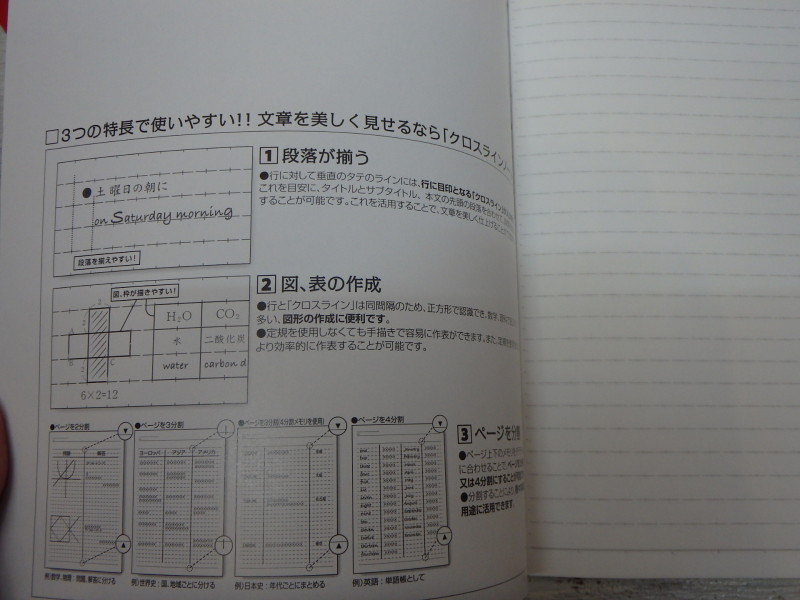 □3つの特長で使いやすい!! 文章を美しく見せるなら「クロスライン
●土曜日の朝に
on Saturday morning
段落を揃えやすい!
1 段落が揃う
●行に対して垂直のタテのラインには、行に目印となる「クロスライン
これを目安に、タイトルとサブタイトル、本文の先頭の段落を合わせて
することが可能です。これを活用することで、文章を美しく仕上げる
図、枠が描きやすい!
2
A
B
C
3
6×2=12
H₂O
CO₂
水
二酸化炭
water
carbon d
2 図、表の作成
●行と「クロスライン」は同間隔のため、正方形で認識でき、数学、
多い、図形の作成に便利です。
●定規を使用しなくても手描きで容易に作表ができます。また、定規
より効率的に作表することが可能です。
●ページを2分割
例)数学、物理:問題、解答に分ける
●ページを3分割
ヨーロッパ
アジア
アメリカ
例)世界史:国、地域ごとに分ける
例)日本史:年代ごとにまとめる
●ページを4分割
例)英語:単語帳として
3 ページを分
●ページ上下のメモリ
に合わせることで、ページを
又は4分割にすること
●分割することにより
用途に活用できます。